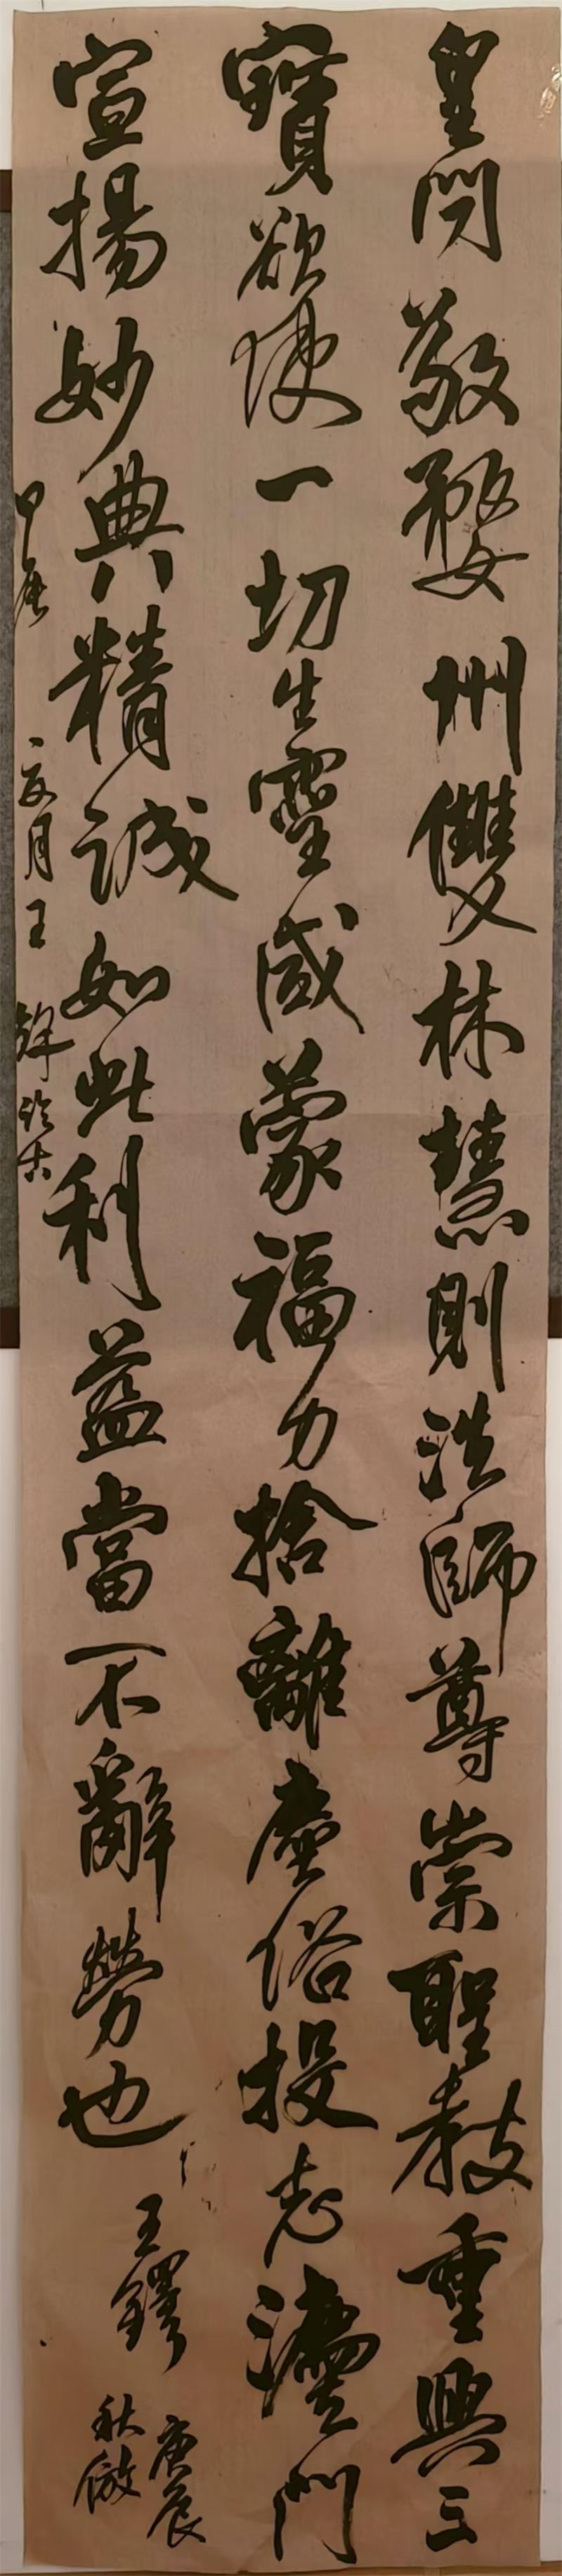 皇問敬婺州雙林慧則法師尊崇聖教重興三
寶欲使一切生靈咸蒙福力捨離塵俗投志灋門
宣揚妙典精誠如此利益當不辭勞也
王鐸
庚辰
秋倣
甲辰
月王 臨古